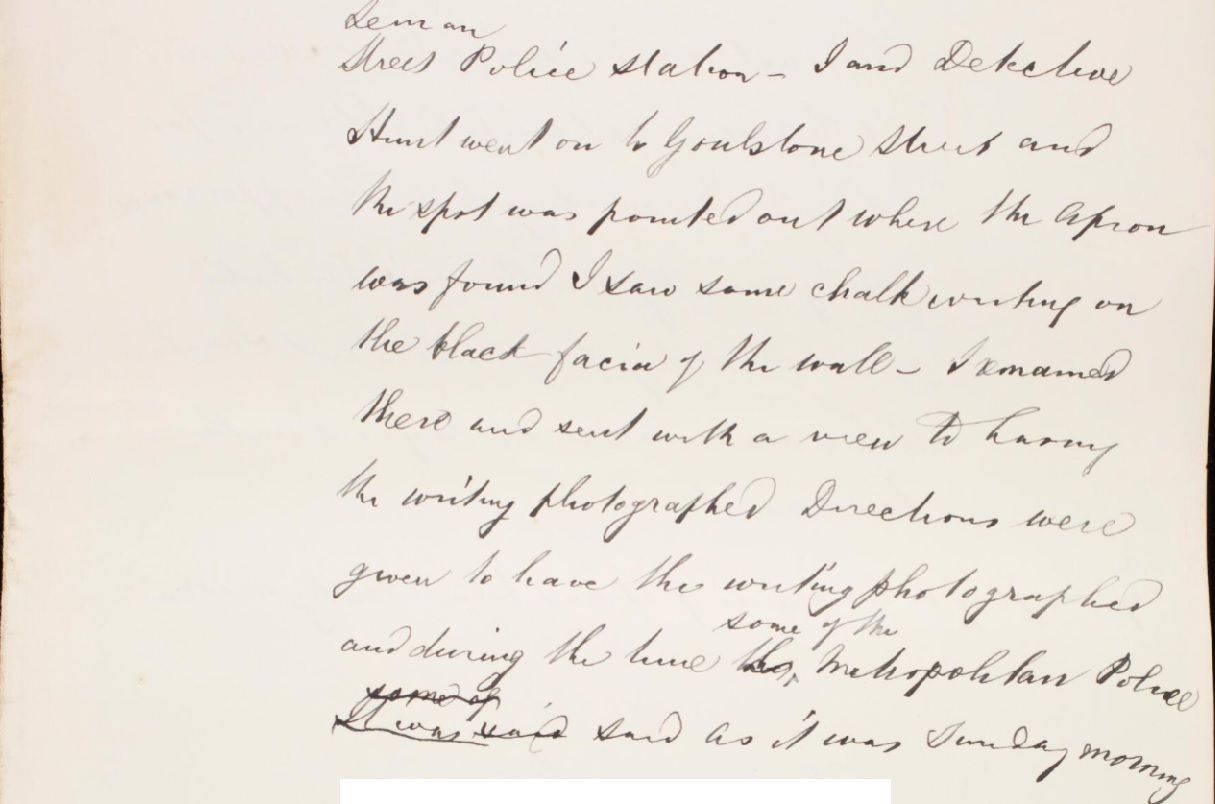 Leman
Street Police station – I and Detective
Hunt went on to Goulstone Street and
the spot was pointed out where the Apron
was found I saw some chalk writing on
the black facia of the wall – I remained
there and sent with a view to having
the writing photographed Directions were
given to have the writing photographed
some of the
and during the time the Metropolitan Police
some of
It was said said as it was Sunday morning